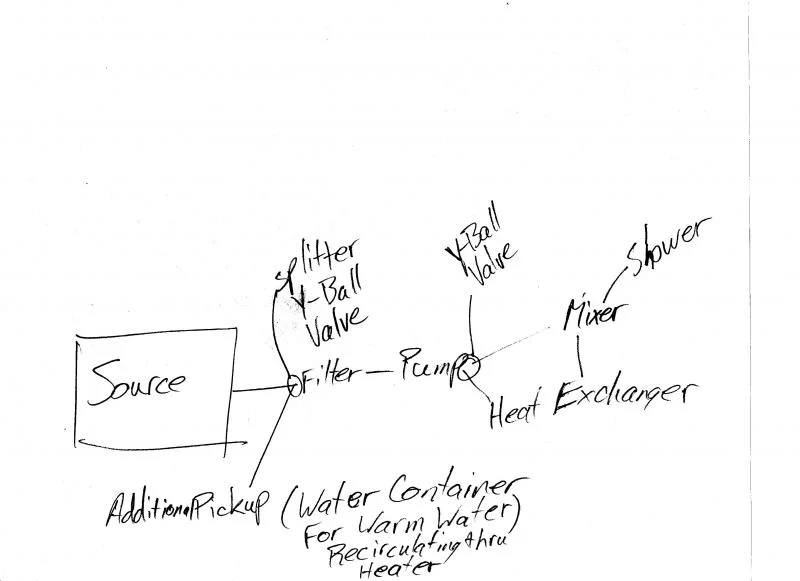 Splitter
Y-Ball
Valve
Y-Ball
Valve
Shower
Mixer
Source
Filter
Pump
Heat Exchanger
Additional Pickup (Water Container
For Warm Water)
Recirculating thru
Heater